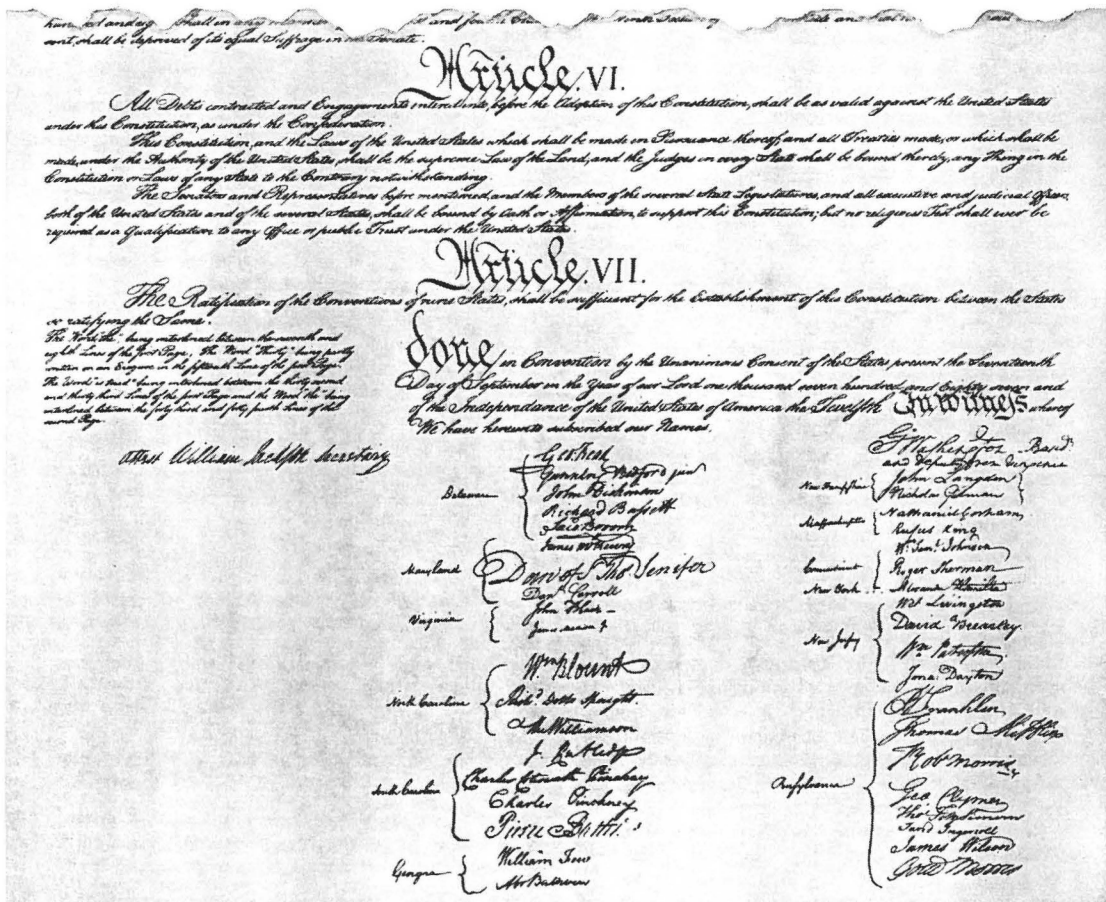 shall in any manner
ment, shall be deprived of its equal Suffrage in the Senate.
Article. VI.
All Debts contracted and Engagements entered into, before the Adoption of this Constitution, shall be as valid against the United States
under this Constitution, as under the Confederation.
This Constitution, and the Laws of the United States which shall be made in Pursuance thereof; and all Treaties made, or which shall be
made, under the Authority of the United States, shall be the supreme Law of the Land; and the Judges in every State shall be bound thereby, any Thing in the
Constitution or Laws of any State to the Contrary notwithstanding.
The Senators and Representatives before mentioned, and the Members of the several State Legislatures, and all executive and judicial Officers,
both of the United States and of the several States, shall be bound by Oath or Affirmation, to support this Constitution; but no religious Test shall ever be
required as a Qualification to any Office or public Trust under the United States.
Article. VII.
The Ratification of the Conventions of nine States, shall be sufficient for the Establishment of this Constitution between the States
so ratifying the Same.
The Word, "the," being interlined between the seventh and
eighth Lines of the first Page, The Word "Thirty" being partly
written on an Erazure in the fifteenth Line of the first Page,
The Words "is tried" being interlined between the thirty second
and thirty third Lines of the first Page and the Word "the" being
interlined between the forty third and forty fourth Lines of the
second Page.
done in Convention by the Unanimous Consent of the States present the Seventeenth
Day of September in the Year of our Lord one thousand seven hundred and Eighty seven and
of the Independance of the United States of America the Twelfth In witness whereof
We have hereunto subscribed our Names,
attest William Jackson Secretary
Delaware
Geo: Read
Gunning Bedford jun
John Dickinson
Richard Bassett
Jaco: Broom
Maryland
James McHenry
Dan of St Thos. Jenifer
Danl Carroll
Virginia
John Blair —
James Madison Jr
North Carolina
Wm Blount
Richd. Dobbs Spaight.
Hu Williamson
South Carolina
J. Rutledge
Charles Cotesworth Pinckney
Charles Pinckney
Pierce Butler.
Georgia
William Few
Abr Baldwin
Go. Washington Presidt.
and deputy from Virginia
New Hampshire
John Langdon
Nicholas Gilman
Massachusetts
Nathaniel Gorham
Rufus King
Connecticut
Wm. Saml. Johnson
Roger Sherman
New York
Alexander Hamilton
New Jersey
Wil: Livingston
David Brearley.
Wm Paterson.
Jona: Dayton
Pensylvania
B Franklin
Thomas Mifflin
Robt Morris
Geo. Clymer
Thos. FitzSimons
Jared Ingersoll
James Wilson
Gouv Morris